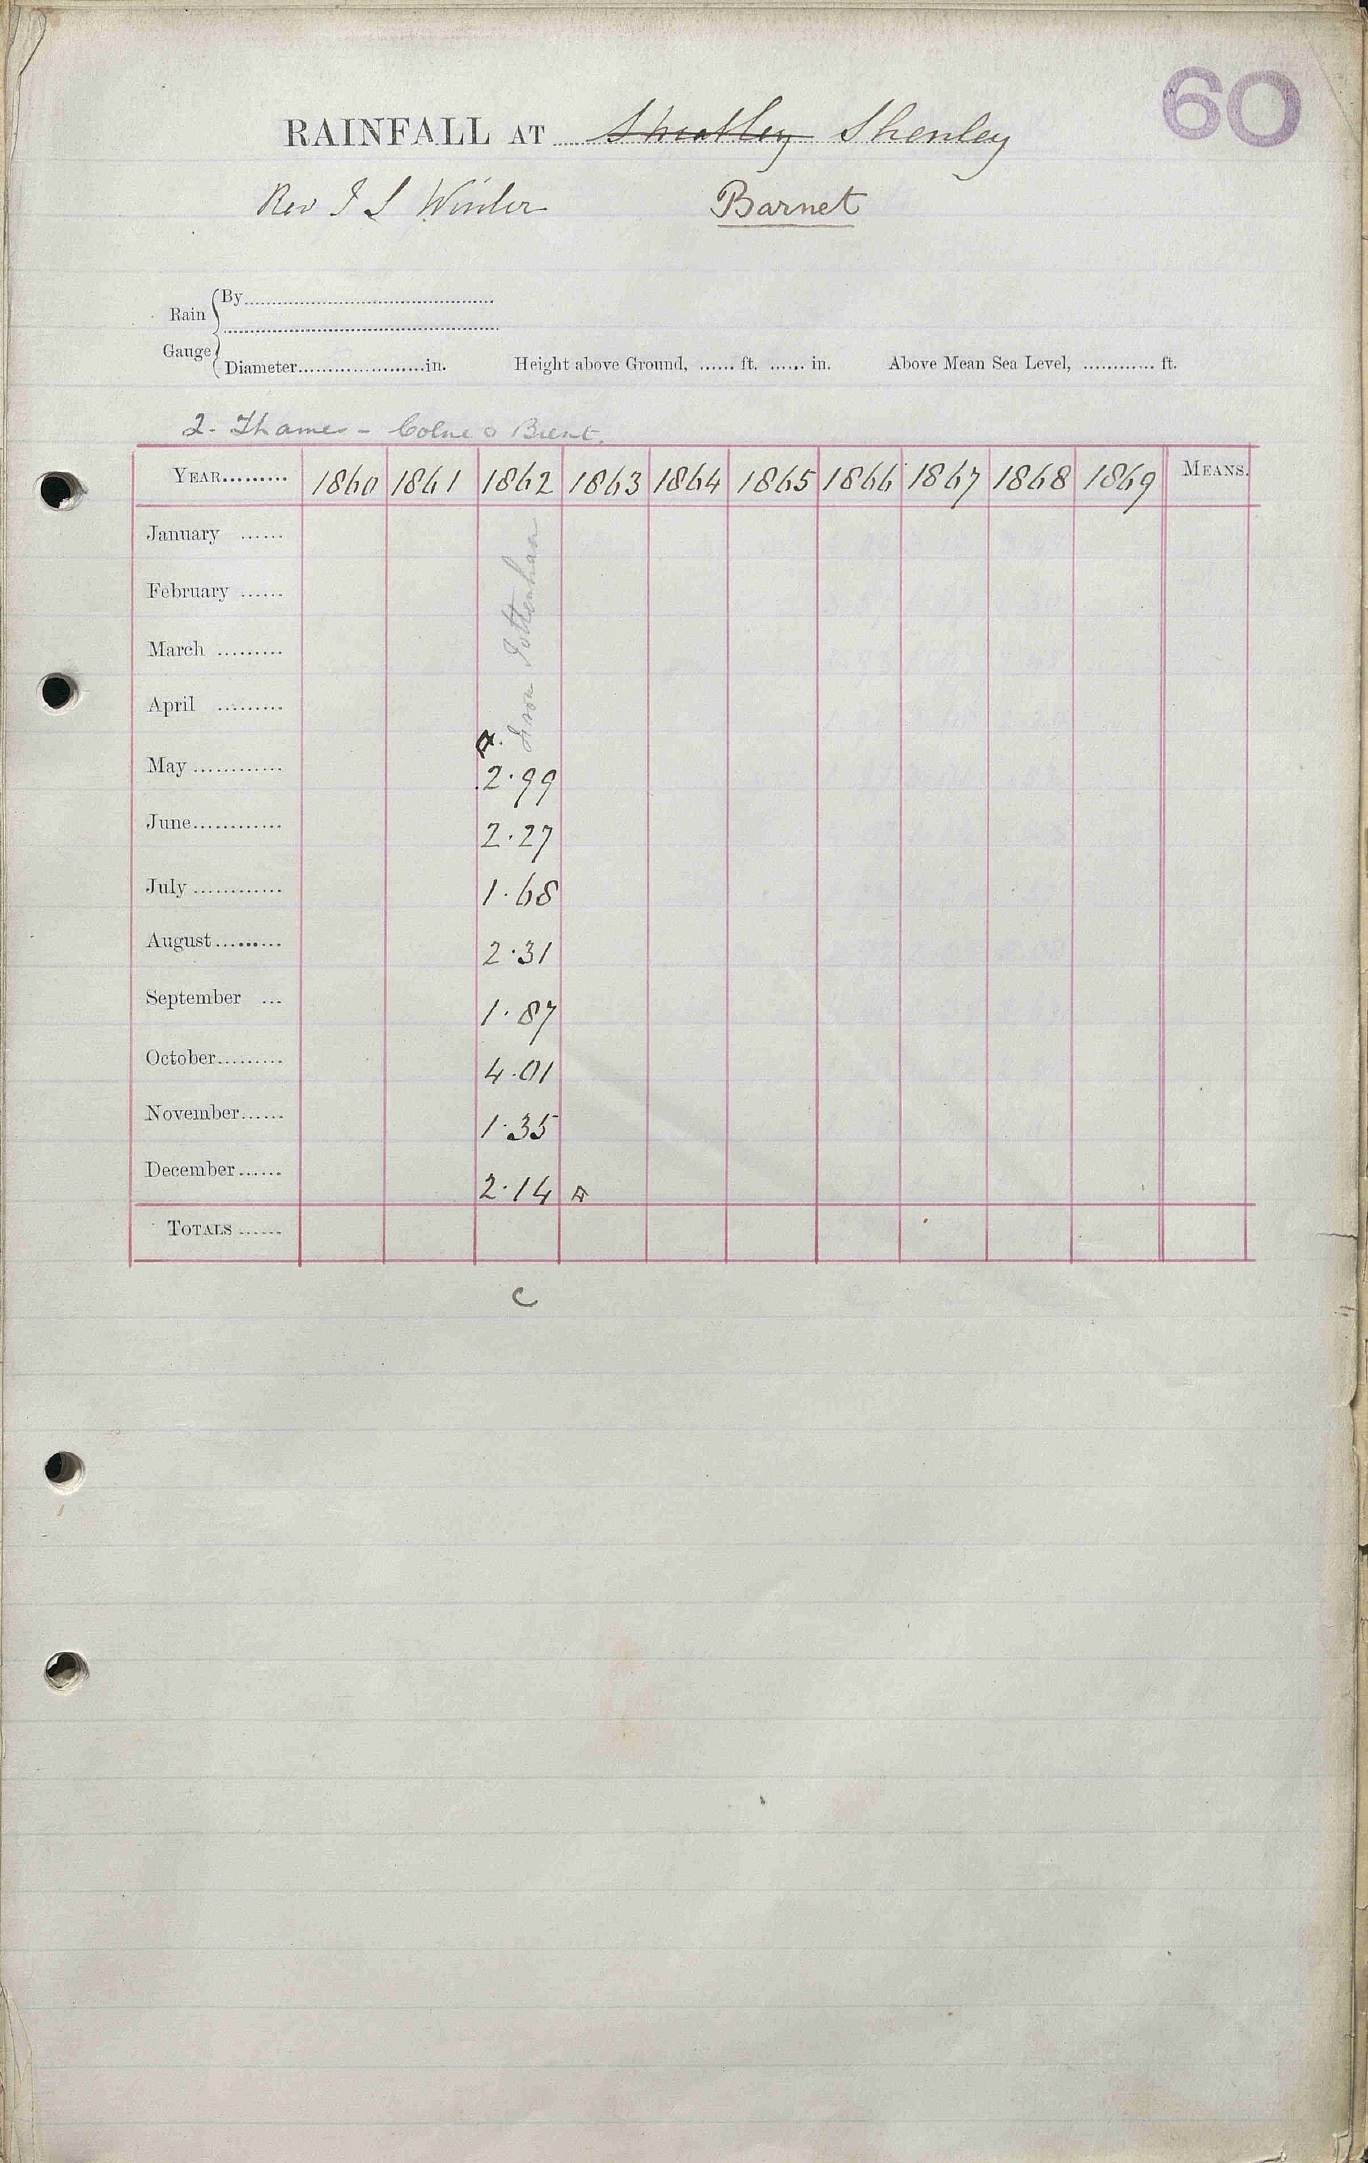 60
RAINFALL AT Sheatley Shenley
Rev J S Winter Barnet
Rain Gauge { By
Diameter in. Height above Ground, ft. in. Above Mean Sea Level, ft.
2. Thames - Colne & Brent.
YEAR 1860 1861 1862 1863 1864 1865 1866 1867 1868 1869 MEANS.
January
February
March
April
from Tottenham
May 2.99
June 2.27
July 1.68
August 2.31
September 1.87
October 4.01
November 1.35
December 2.14
TOTALS
C